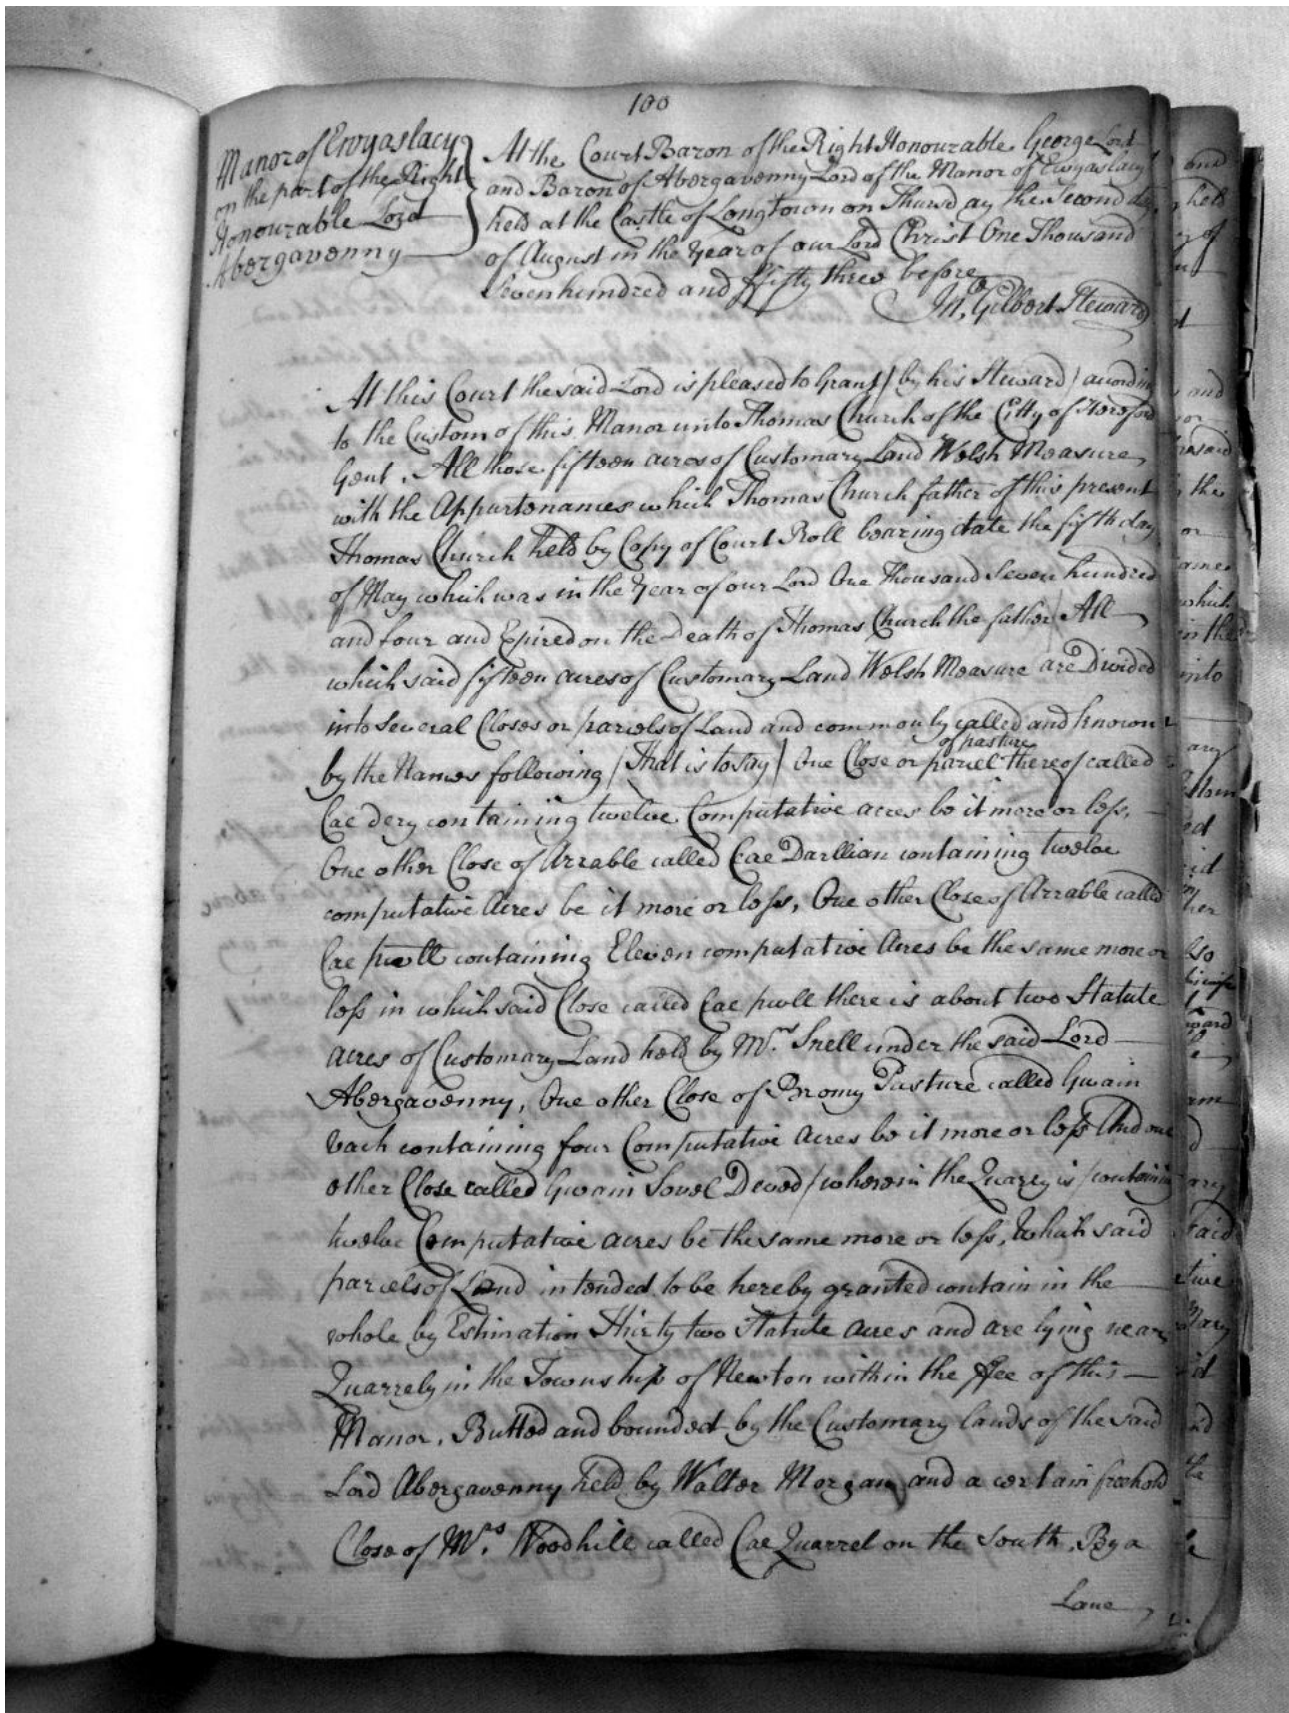 100
Manor of Ewyaslacy
on the part of the Right
Honourable Lord
Abergavenny
At the Court Baron of the Right Honourable George Lord
and Baron of Abergavenny Lord of the Manor of Ewyaslacy
held at the Castle of Longtown on Thursday the Second day
of August in the Year of our Lord Christ One Thousand
Seven hundred and ffifty three before
Jn.o Gilbert Steward
At this Court the said Lord is pleased to Grant / by his Steward / according
to the Custom of this Manor unto Thomas Church of the Citty of Hereford
Gent. All those fifteen acres of Customary Land Welsh Measure
with the Appurtenances which Thomas Church father of this present
Thomas Church held by Copy of Court Roll bearing date the fifth day
of May which was in the Year of our Lord One Thousand Seven hundred
and four and Expired on the Death of Thomas Church the father / All
which said fifteen acres of Customary Land Welsh Measure are Divided
into Several Closes or parcels of Land and commonly called and known
by the Names following / That is to say / One Close or parcel of pasture thereof called
Cae dery containing twelve Computative acres be it more or less,
One other Close of Arrable called Cae Darllian containing twelve
computative Acres be it more or less, One other Close of Arrable called
Cae pwll containing Eleven computative Acres be the same more or
less in which said Close called Cae pwll there is about two Statute
acres of Customary Land held by Mrs. Snell under the said Lord
Abergavenny, One other Close of Bromy Pasture called Gwain
vach containing four Computative Acres be it more or less And one
other Close called Gwain Sovel Deved / wherein the Quarry is / containing
twelve Computative acres be the same more or less, Which said
parcels of Land intended to be hereby granted contain in the
whole by Estimation Thirty two Statute Acres and are lying near
Quarrely in the Township of Newton within the ffee of this
Manor, Butted and bounded by the Customary lands of the said
Lord Abergavenny held by Walter Morgan and a certain freehold
Close of Mrs. Woodhill called Cae Quarrel on the South, By a
Lane